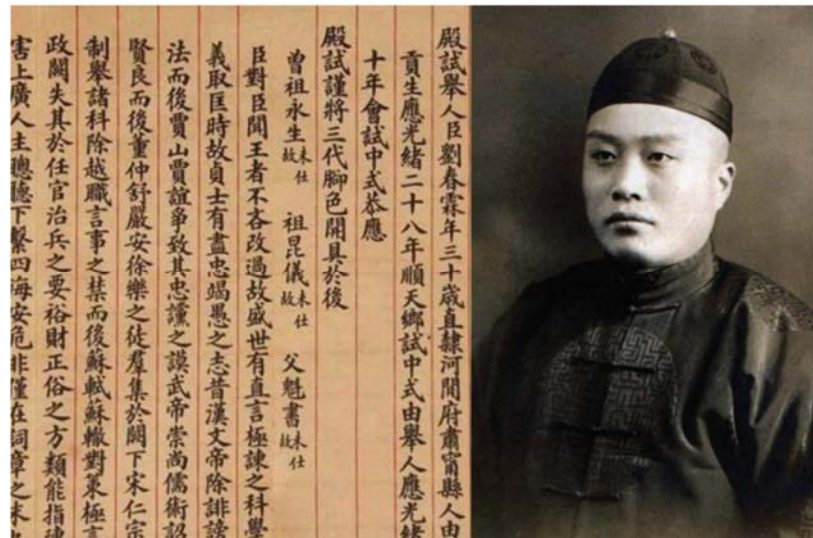 殿試舉人臣劉春霖年三十歲直隸河間府肅甯縣人由
貢生應光緒二十八年順天鄉試中式由舉人應光緒
十年會試中式恭應
殿試謹將三代腳色開具於後
曾祖永生未仕故 祖昆儀未仕故 父魁書未仕故
臣對臣聞王者不吝改過故盛世有直言極諫之科學
義取匡時故貞士有盡忠竭愚之志昔漢文帝除誹謗
法而後賈山賈誼爭致其忠讜之謨武帝崇尚儒術詔
賢良而後董仲舒嚴安徐樂之徒羣集於闕下宋仁宗
制舉諸科除越職言事之禁而後蘇軾蘇轍對策極言
政闕失其於任官治兵之要裕財正俗之方類能指陳
害上廣人主聰聽下繫四海安危非僅在詞章之末